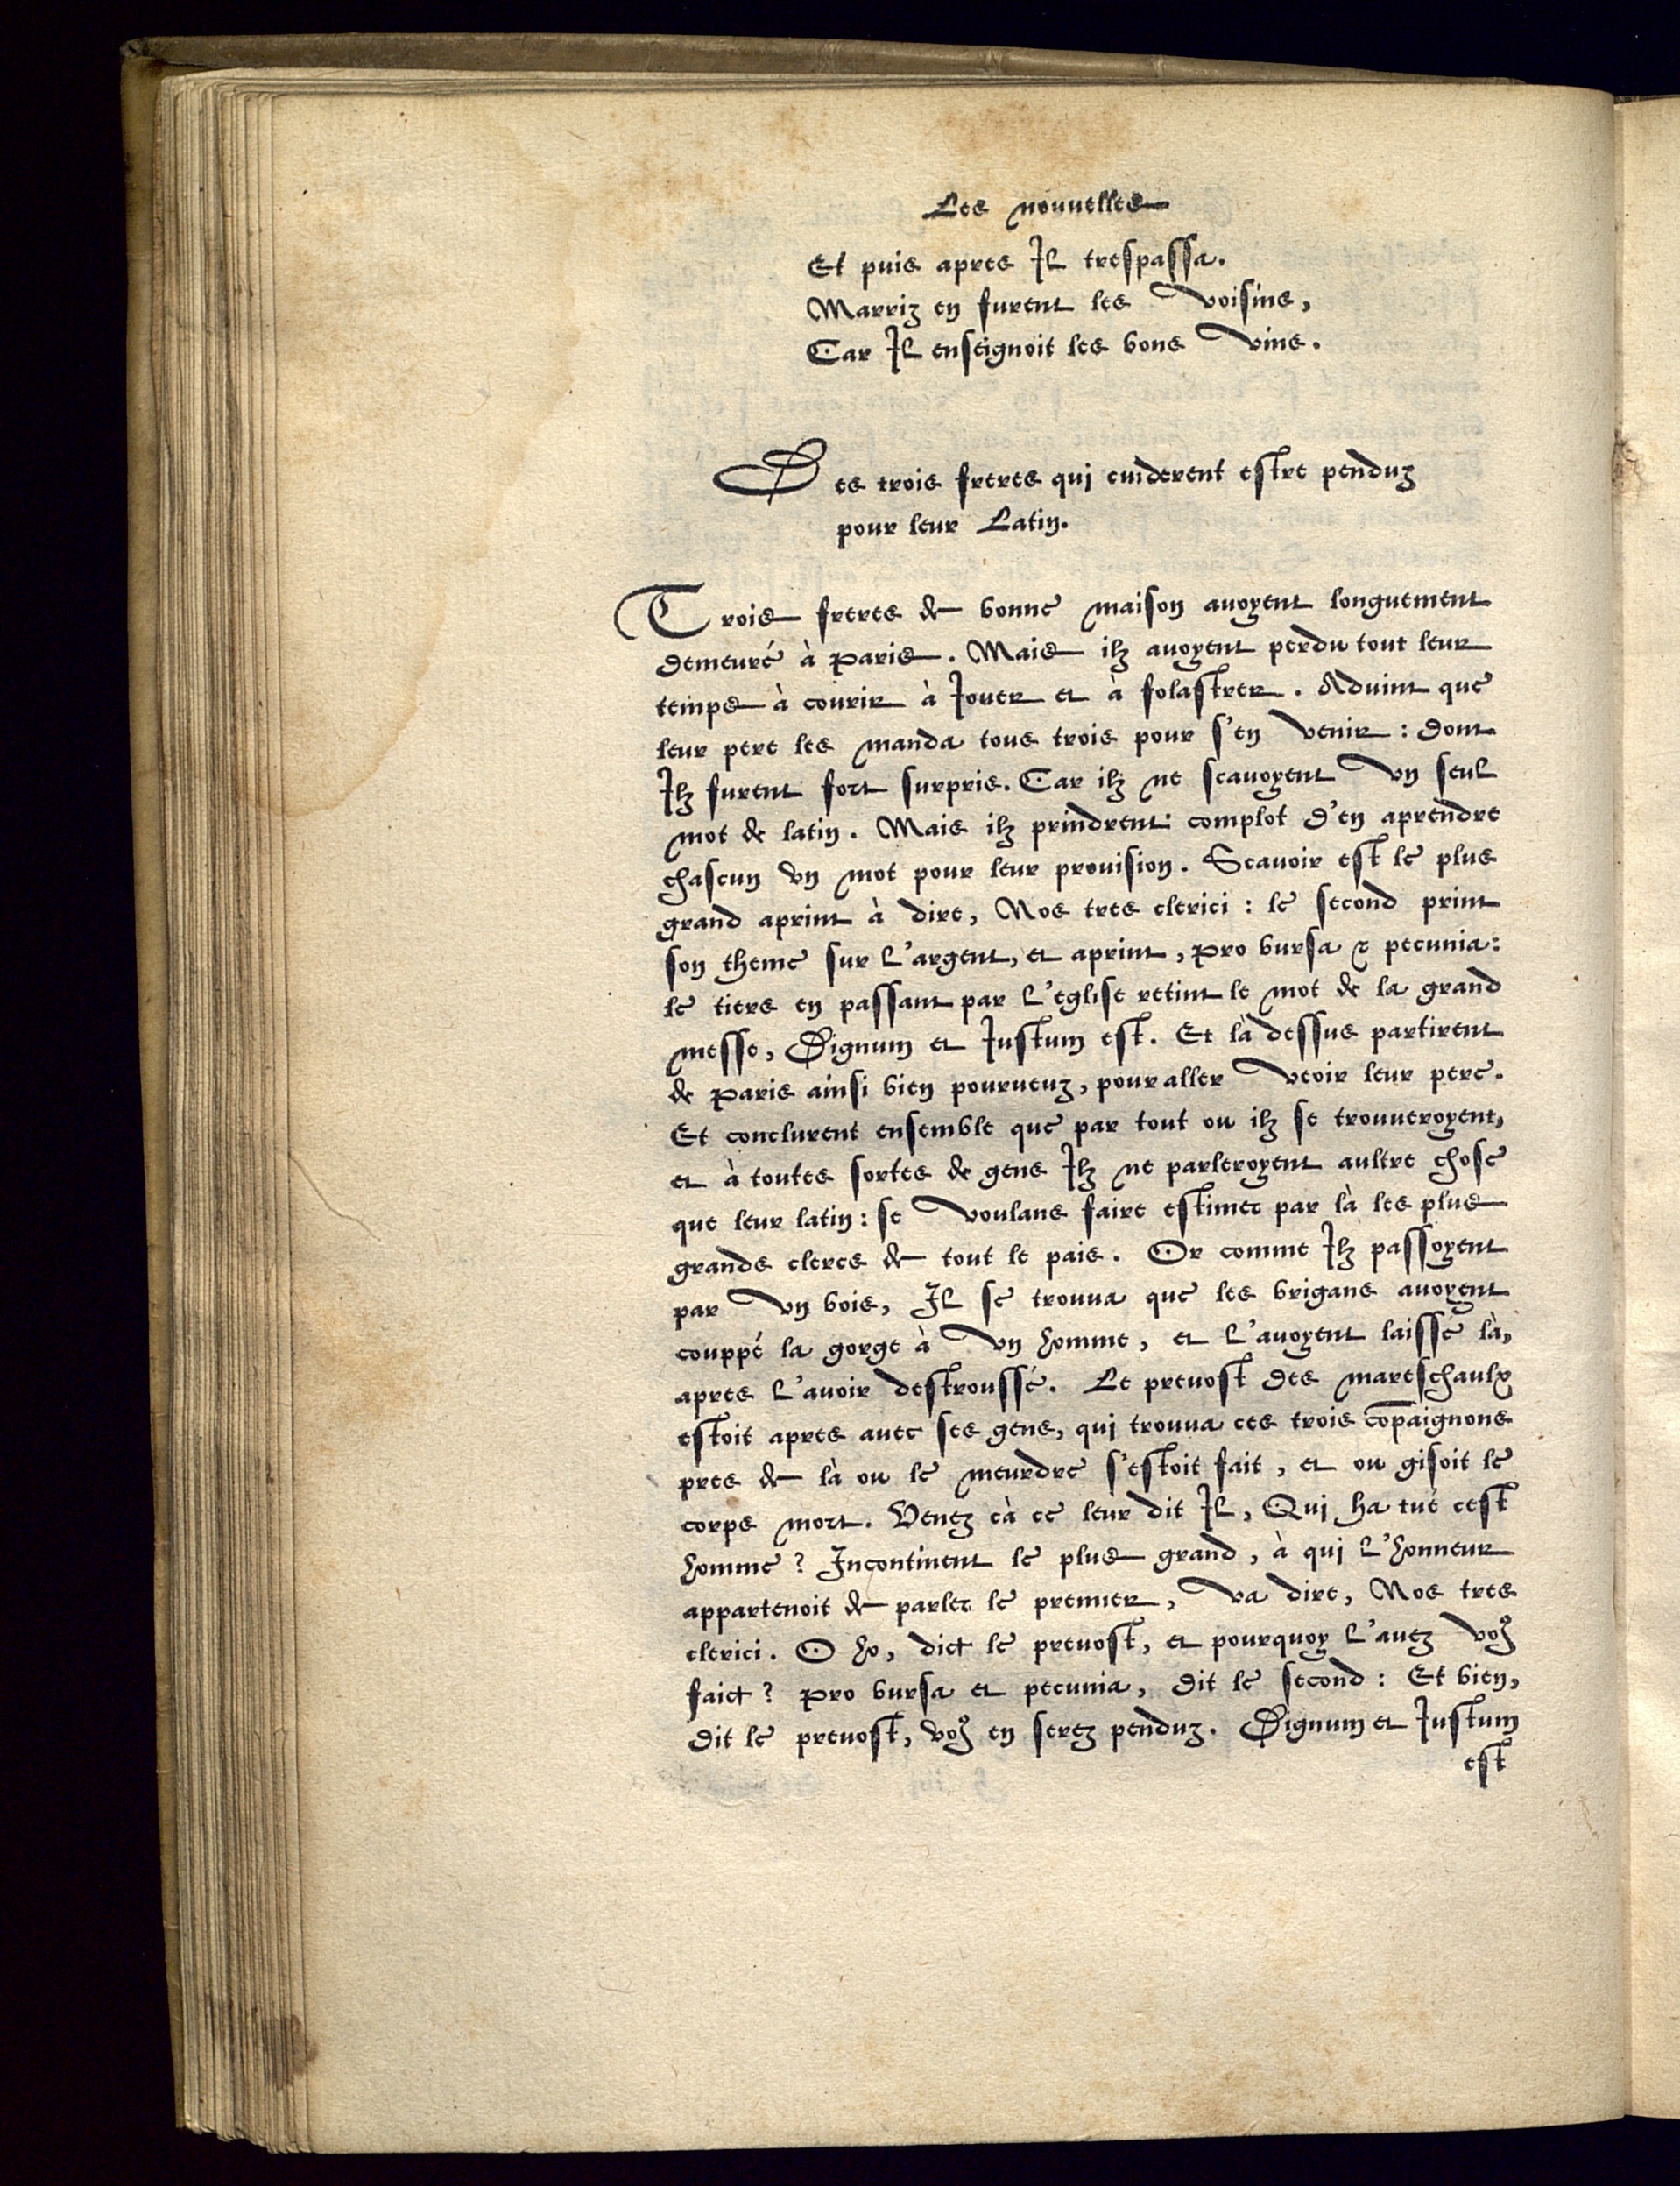 Les nouuelles
Et puis apres Il trespassa.
Marriz en furent les voisins,
Car Il enseignoit les bons vins.
Des trois freres qui cuiderent estre penduz
pour leur Latin.
Trois freres de bonne maison auoyent longuement
demeuré à Paris. Mais ilz auoyent perdu tout leur
temps à courir à Iouer et à folastrer. Aduint que
leur pere les manda tous trois pour s'en venir: dont
Ilz furent fort surpris. Car ilz ne scauoyent vn seul
mot de latin. Mais ilz prindrent complot d'en aprendre
chascun vn mot pour leur prouision. Scauoir est le plus
grand aprint à dire, Nos tres clerici: le second print
son theme sur l'argent, et aprint, Pro bursa & pecunia:
le tiers en passant par l'eglise retint le mot de la grand
messe, Dignum et Iustum est. Et là dessus partirent
de Paris ainsi bien pourueuz, pour aller veoir leur pere.
Et conclurent ensemble que par tout ou ilz se trouueroyent,
et à toutes sortes de gens Ilz ne parleroyent aultre chose
que leur latin: se voulans faire estimer par là les plus
grands clercs de tout le pais. Or comme Ilz passoyent
par vn bois, Il se trouua que les brigans auoyent
couppé la gorge à vn homme, et l'auoyent laissé là,
apres l'auoir destroussé. Le preuost des mareschaulx
estoit apres auec ses gens, qui trouua ces trois cōpaignons
pres de là ou le meurdre s'estoit fait, et ou gisoit le
corps mort. Venez cà ce leur dit Il, Qui ha tué cest
homme? Incontinent le plus grand, à qui l'honneur
appartenoit de parler le premier, va dire, Nos tres
clerici. O ho, dict le preuost, et pourquoy l'auez voꝰ
faict? Pro bursa et pecunia, dit le second: Et bien,
dit le preuost, voꝰ en serez penduz. Dignum et Iustum
est